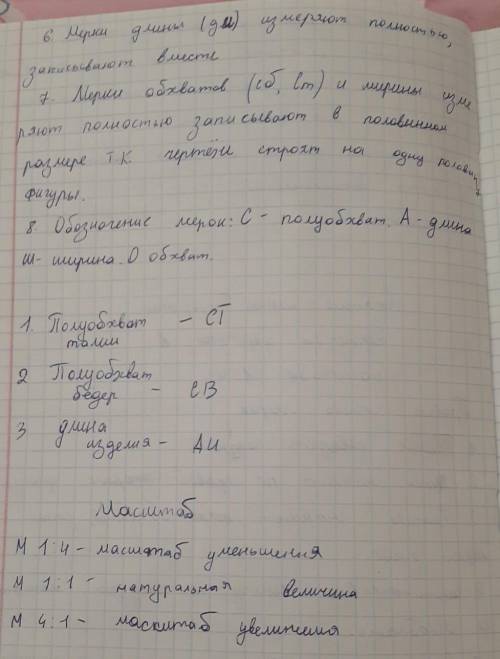 6. Мерки длины (ди) измеряют полностью,
записывают вместе
7. Мерки обхватов (сб, ) и ширины изме
ряют полностью записывают в половинном
размере т.к чертёжи строят на одну половину
фигуры.
8. Обозначение мерок: С - полуобхват. А - длина
Ш - ширина. О обхват.
1. Полуобхват - СТ
талии
2 Полуобхват
бедер - СВ
3 длина
изделия - ДИ
Масштаб
М 1:4 - масштаб уменьшения
М 1:1 - натуральная величина
М 4:1 - масштаб увеличения